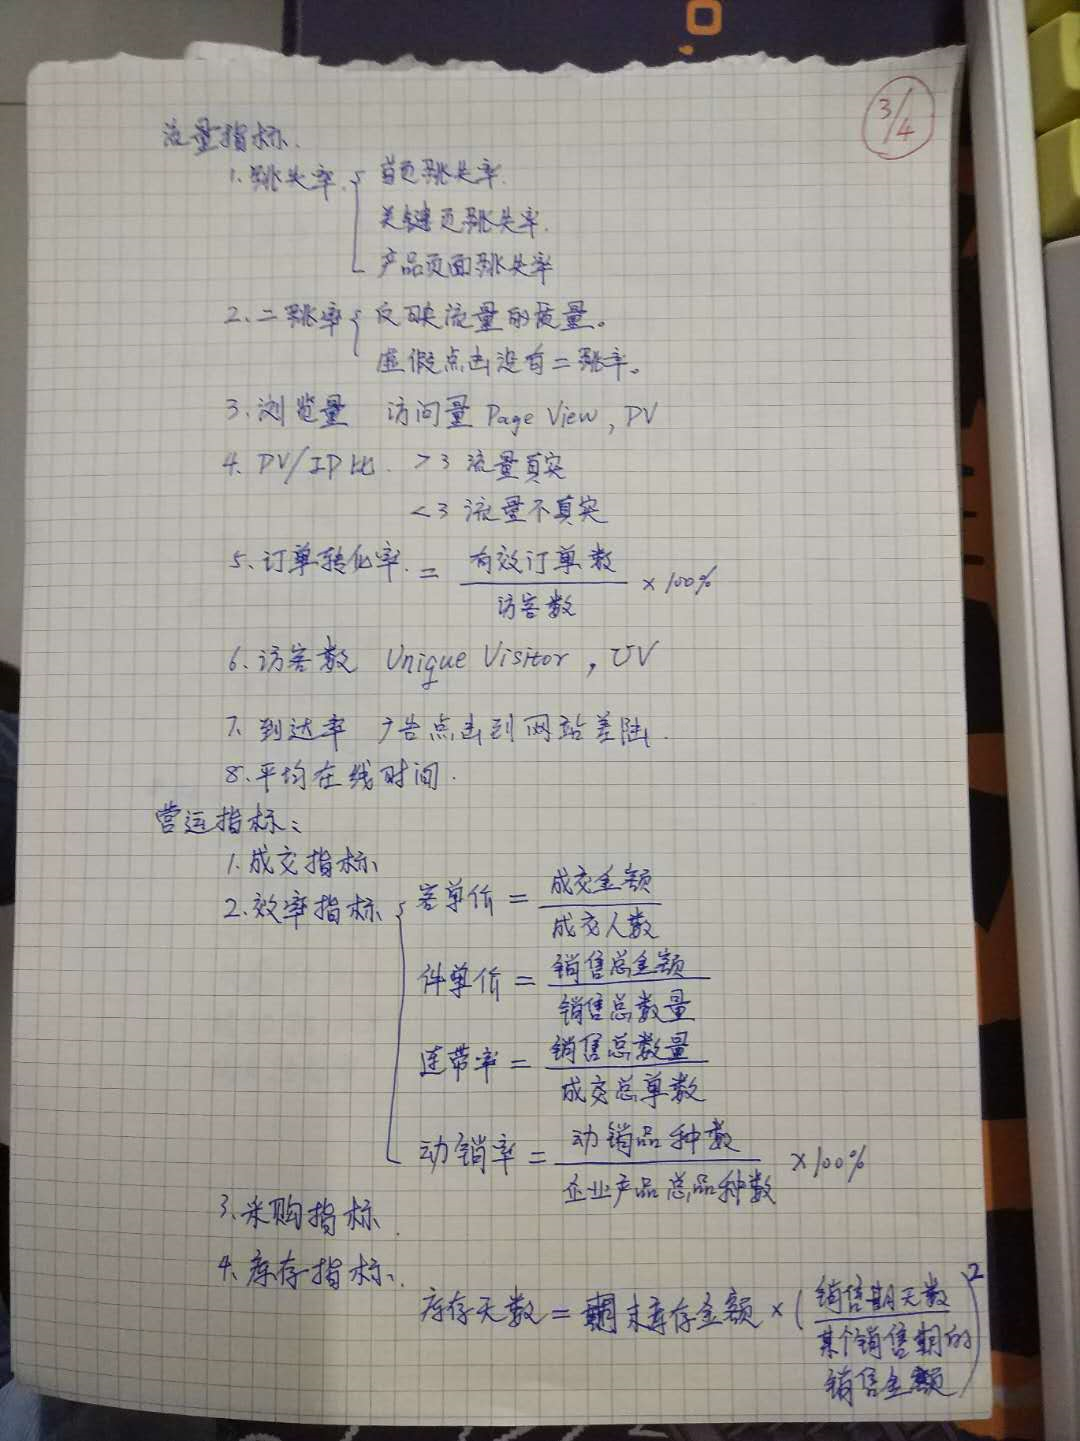 3/4
流量指标.
1. 跳失率. { 首页跳失率.
关键页跳失率.
产品页面跳失率
2. 二跳率 { 反映流量的质量。
虚假点击没有二跳率。
3. 浏览量 访问量 Page View, PV
4. PV/IP比. >3 流量真实
<3 流量不真实
5. 订单转化率. = 有效订单数 / 访客数 × 100%
6. 访客数 Unique Visitor, UV
7. 到达率 广告点击到网站差陆.
8. 平均在线时间.
营运指标:
1. 成交指标
2. 效率指标 { 客单价 = 成交金额 / 成交人数
件单价 = 销售总金额 / 销售总数量
连带率 = 销售总数量 / 成交总单数
动销率 = 动销品种数 / 企业产品总品种数 ×100%
3. 采购指标.
4. 库存指标.
库存天数 = 期末库存金额 × (销售期天数 / 某个销售期的销售金额)²